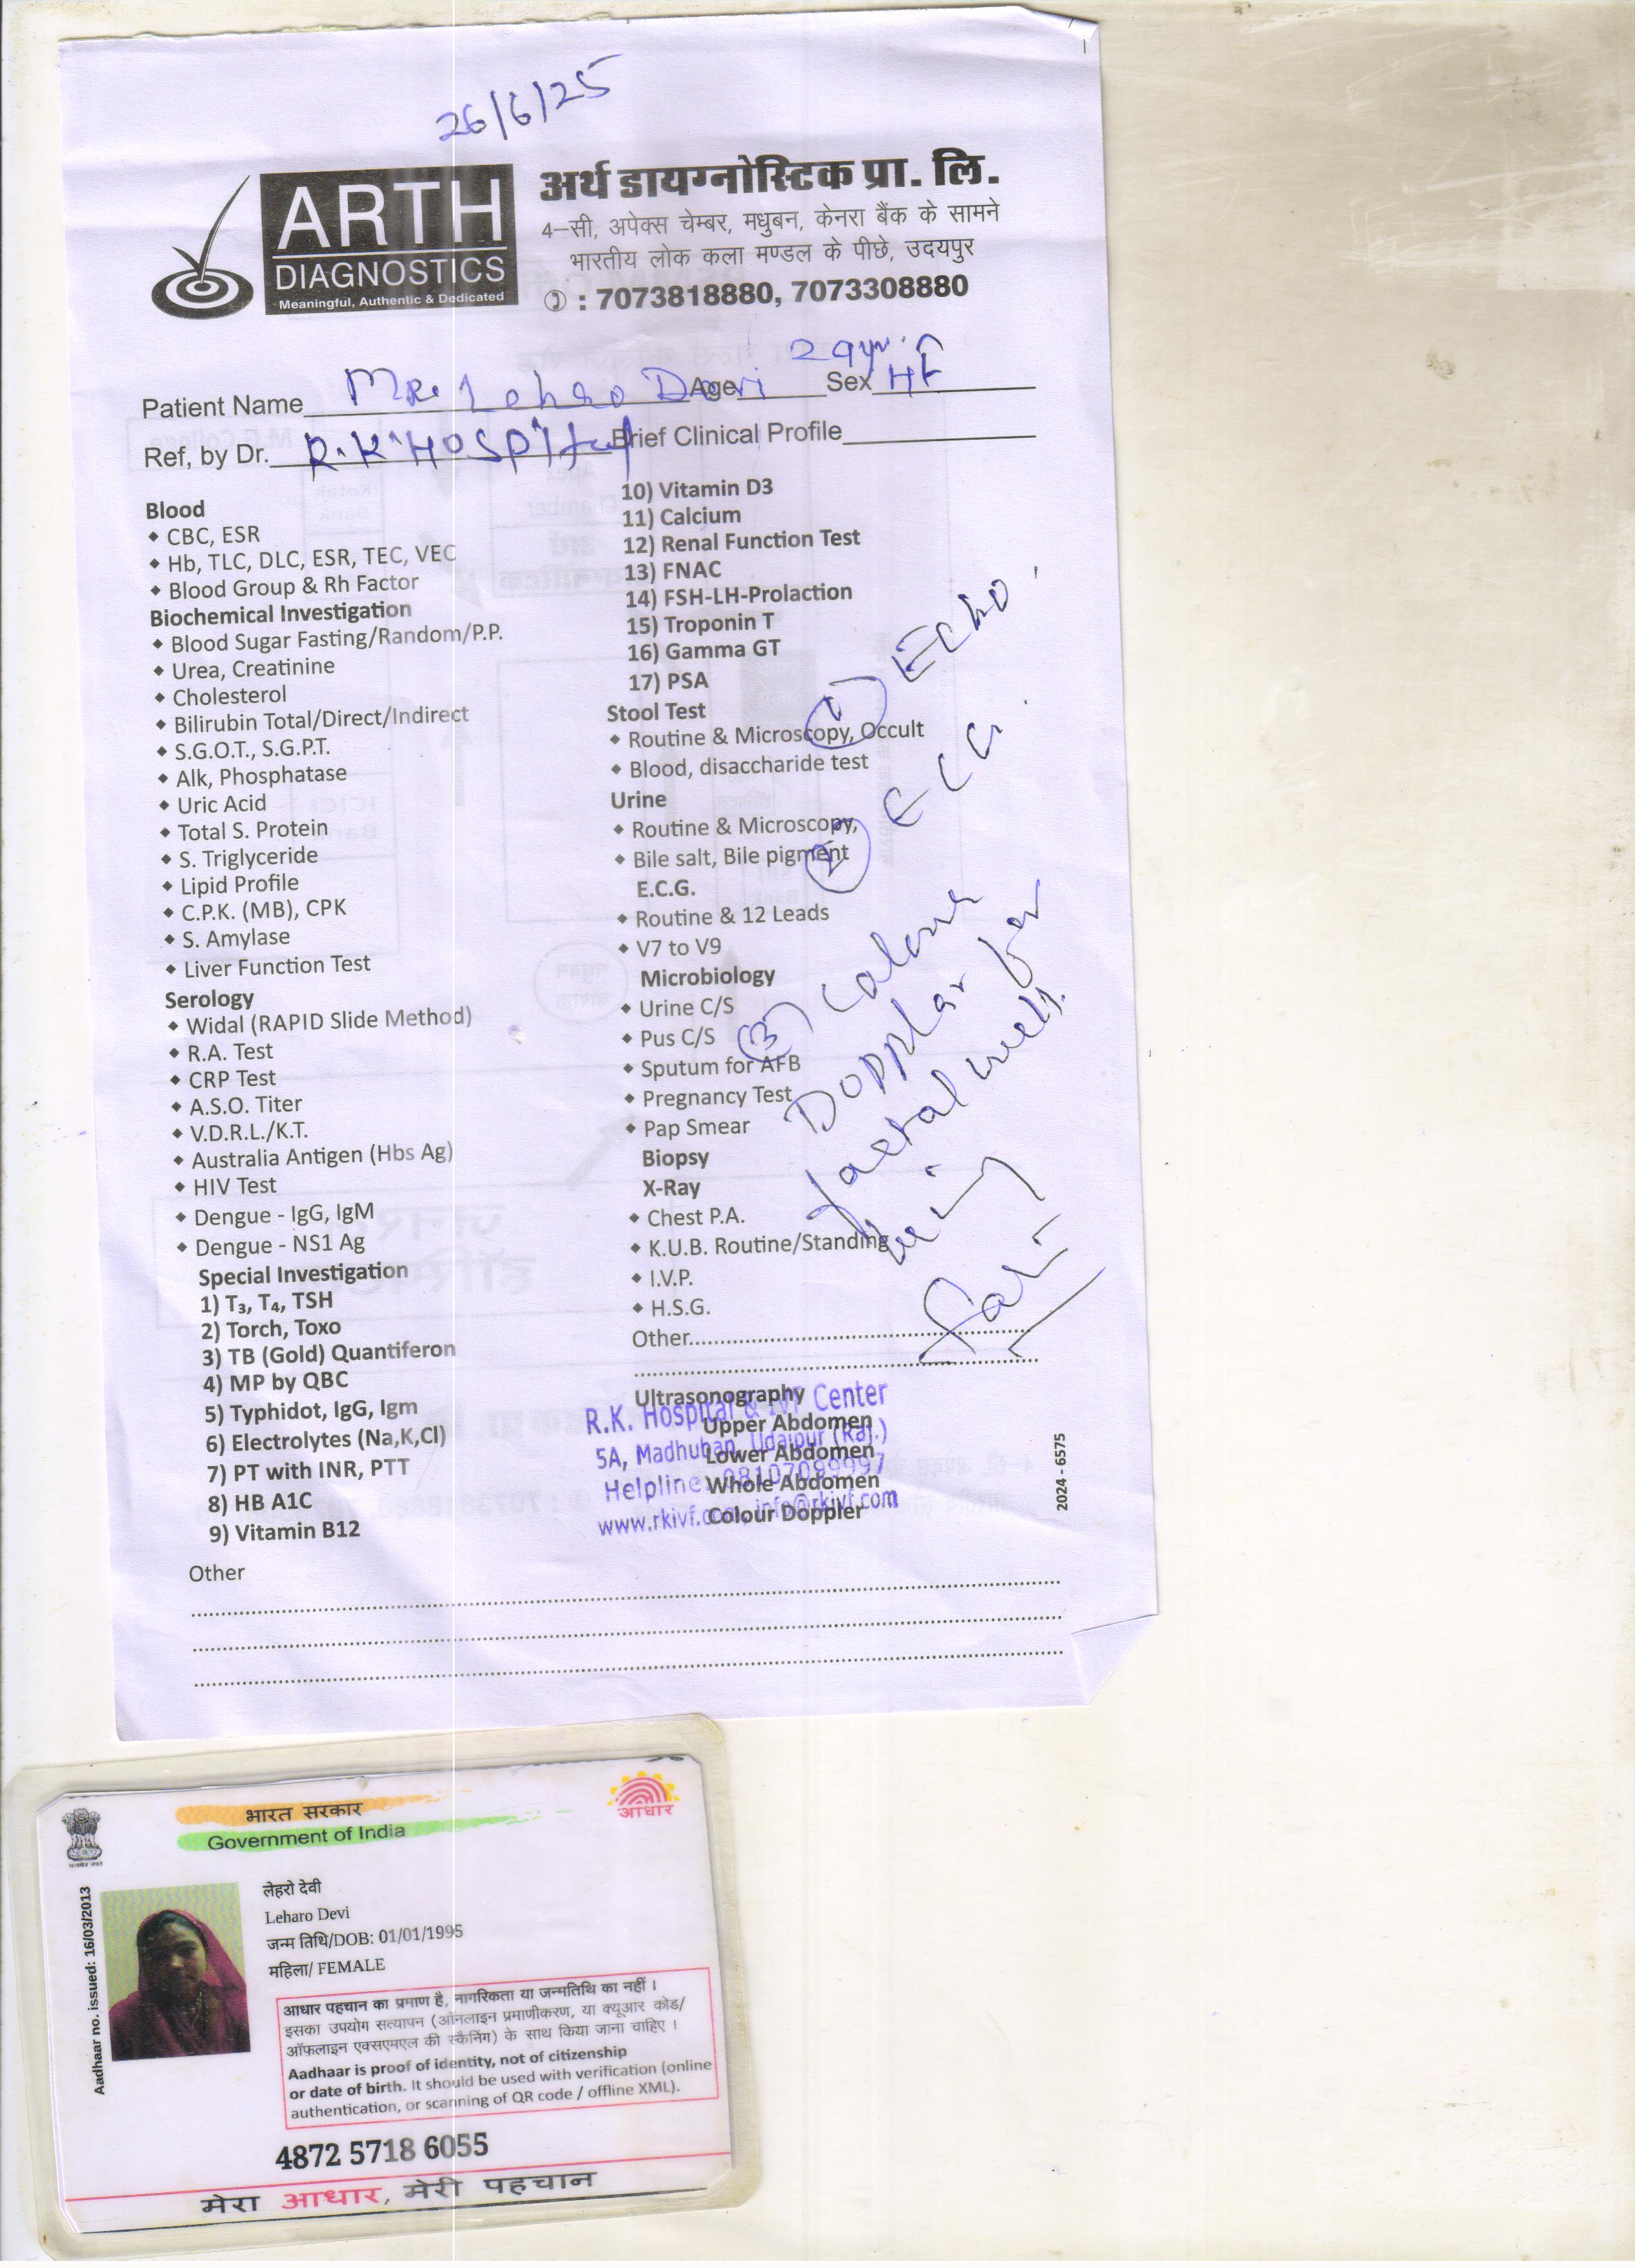 26/6/25
ARTH
DIAGNOSTICS
Meaningful, Authentic & Dedicated
अर्थ डायग्नोस्टिक प्रा. लि.
4-सी, अपेक्स चेम्बर, मधुबन, केनरा बैंक के सामने
भारतीय लोक कला मण्डल के पीछे, उदयपुर
: 7073818880, 7073308880
Patient Name Leharo Devi Age 29yr. Sex
Ref, by Dr. R.K HOSPITal Brief Clinical Profile
Blood
CBC, ESR
Hb, TLC, DLC, ESR, TEC, VEC
Blood Group & Rh Factor
Biochemical Investigation
Blood Sugar Fasting/Random/P.P.
Urea, Creatinine
Cholesterol
Bilirubin Total/Direct/Indirect
S.G.O.T., S.G.P.T.
Alk, Phosphatase
Uric Acid
Total S. Protein
S. Triglyceride
Lipid Profile
C.P.K. (MB), CPK
S. Amylase
Liver Function Test
Serology
Widal (RAPID Slide Method)
R.A. Test
CRP Test
A.S.O. Titer
V.D.R.L./K.T.
Australia Antigen (Hbs Ag)
HIV Test
Dengue - IgG, IgM
Dengue - NS1 Ag
Special Investigation
1) T₃, T₄, TSH
2) Torch, Toxo
3) TB (Gold) Quantiferon
4) MP by QBC
5) Typhidot, IgG, Igm
6) Electrolytes (Na,K,Cl)
7) PT with INR, PTT
8) HB A1C
9) Vitamin B12
10) Vitamin D3
11) Calcium
12) Renal Function Test
13) FNAC
14) FSH-LH-Prolaction
15) Troponin T
16) Gamma GT
17) PSA
Stool Test
Routine & Microscopy, Occult
Blood, disaccharide test
Urine
Routine & Microscopy,
Bile salt, Bile pigment
E.C.G.
Routine & 12 Leads
V7 to V9
Microbiology
Urine C/S
Pus C/S
Sputum for AFB
Pregnancy Test
Pap Smear
Biopsy
X-Ray
Chest P.A.
K.U.B. Routine/Standing
I.V.P.
H.S.G.
Other
Ultrasonography
Upper Abdomen
Lower Abdomen
Whole Abdomen
Colour Doppler
1) Echo.
2) ECG.
3)
Dopplar for
faetal well
being
R.K. Hospital & IVF Center
5A, Madhuban, Udaipur (Raj.)
Helpline: 08107099997
www.rkivf.com, info@rkivf.com
2024 - 6575
Other
भारत सरकार
Government of India
आधार
Aadhaar no. issued: 16/03/2013
लेहरो देवी
Leharo Devi
जन्म तिथि/DOB: 01/01/1995
महिला/ FEMALE
आधार पहचान का प्रमाण है, नागरिकता या जन्मतिथि का नहीं ।
इसका उपयोग सत्यापन (ऑनलाइन प्रमाणीकरण, या क्यूआर कोड/
ऑफलाइन एक्सएमएल की स्कैनिंग) के साथ किया जाना चाहिए ।
Aadhaar is proof of identity, not of citizenship
or date of birth. It should be used with verification (online
authentication, or scanning of QR code / offline XML).
4872 5718 6055
मेरा आधार, मेरी पहचान